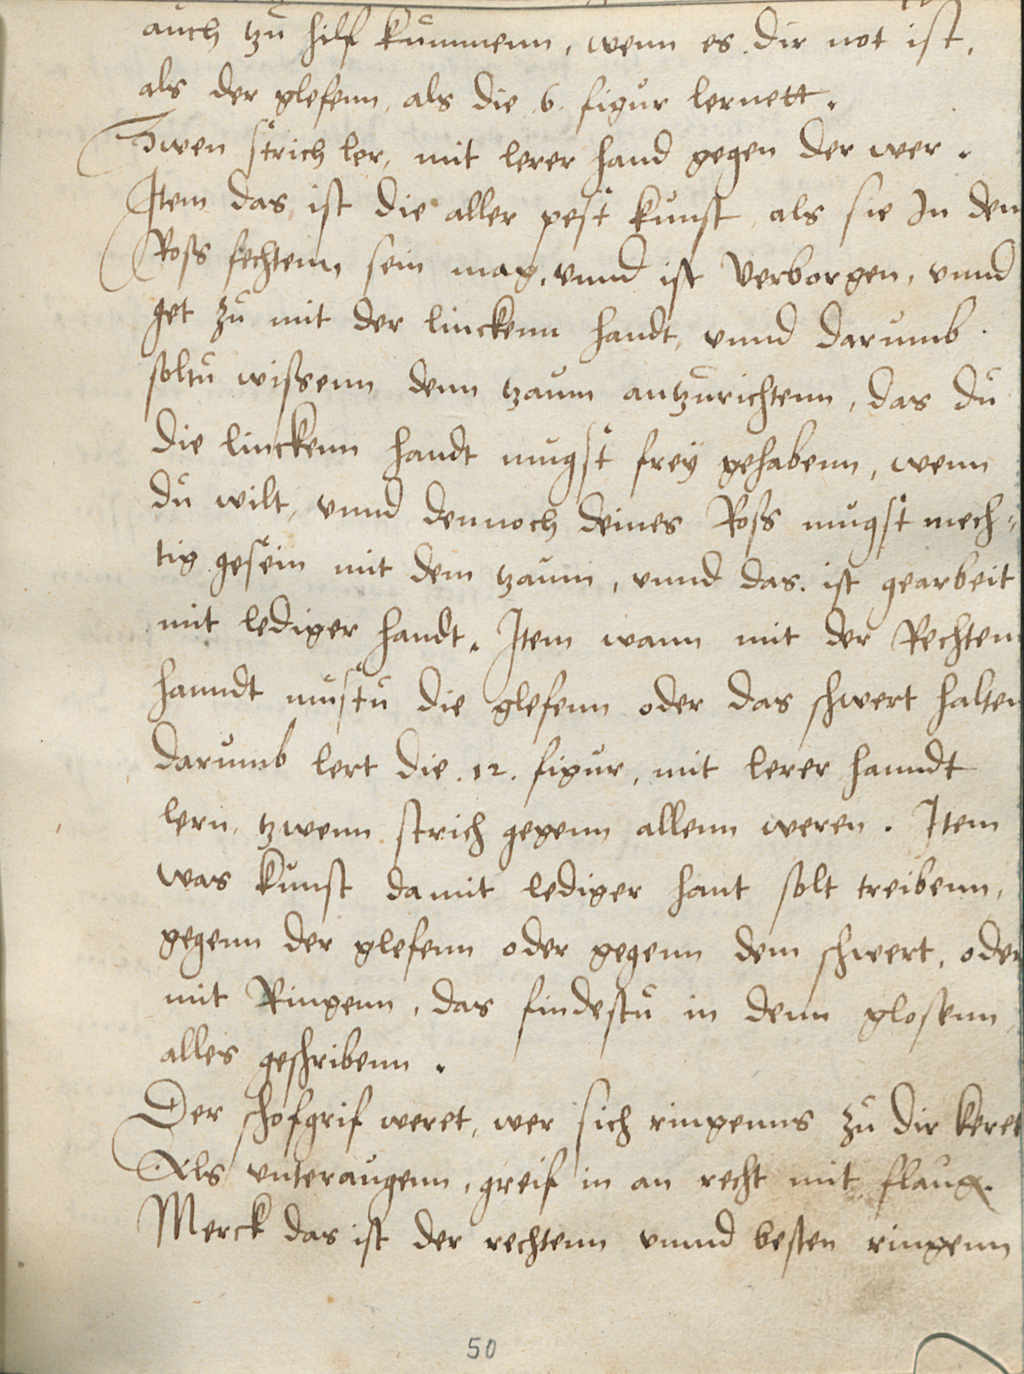 auch tzu hilf kummenn, wenn es dir not ist,
als der glefenn, als die 6. figur lernett.
Zwen strich ler, mit lerer hand gegen der wer.
Item das ist die aller pest kunst als sie In den
Ross fechtenn, sein mag, vnnd ist Verborgen, vnnd
get zu mit der linckenn handt, vnnd darumb
soltu wissenn denn tzaum antzurichtenn, das du
die linckenn handt mugst frey gehabenn, wenn
du wilt, vnnd dennoch deines Ross mugst mech⸗
tig gesein mit dem tzaum, vnnd das. ist gearbeit
mit lediger handt. Item wann mit der Rechten
hanndt mustu die glefenn oder das schwert halten
darumb lert die .12. figur, mit lerer hanndt
lern, tzwenn strich gegenn allenn weren. Item
was kunst da mit lediger hant solt treibenn,
gegenn der glefenn oder gegenn dem schwert, oder
mit Ringenn, das findestu in denn glosenn
alles geschribenn.
Der schofgrif weret, wer sich ringenns zu dir keret
Als vnteraugenn, greif in an recht mit flaug.
Merck das ist der rechtenn vnnd besten ringenn
50